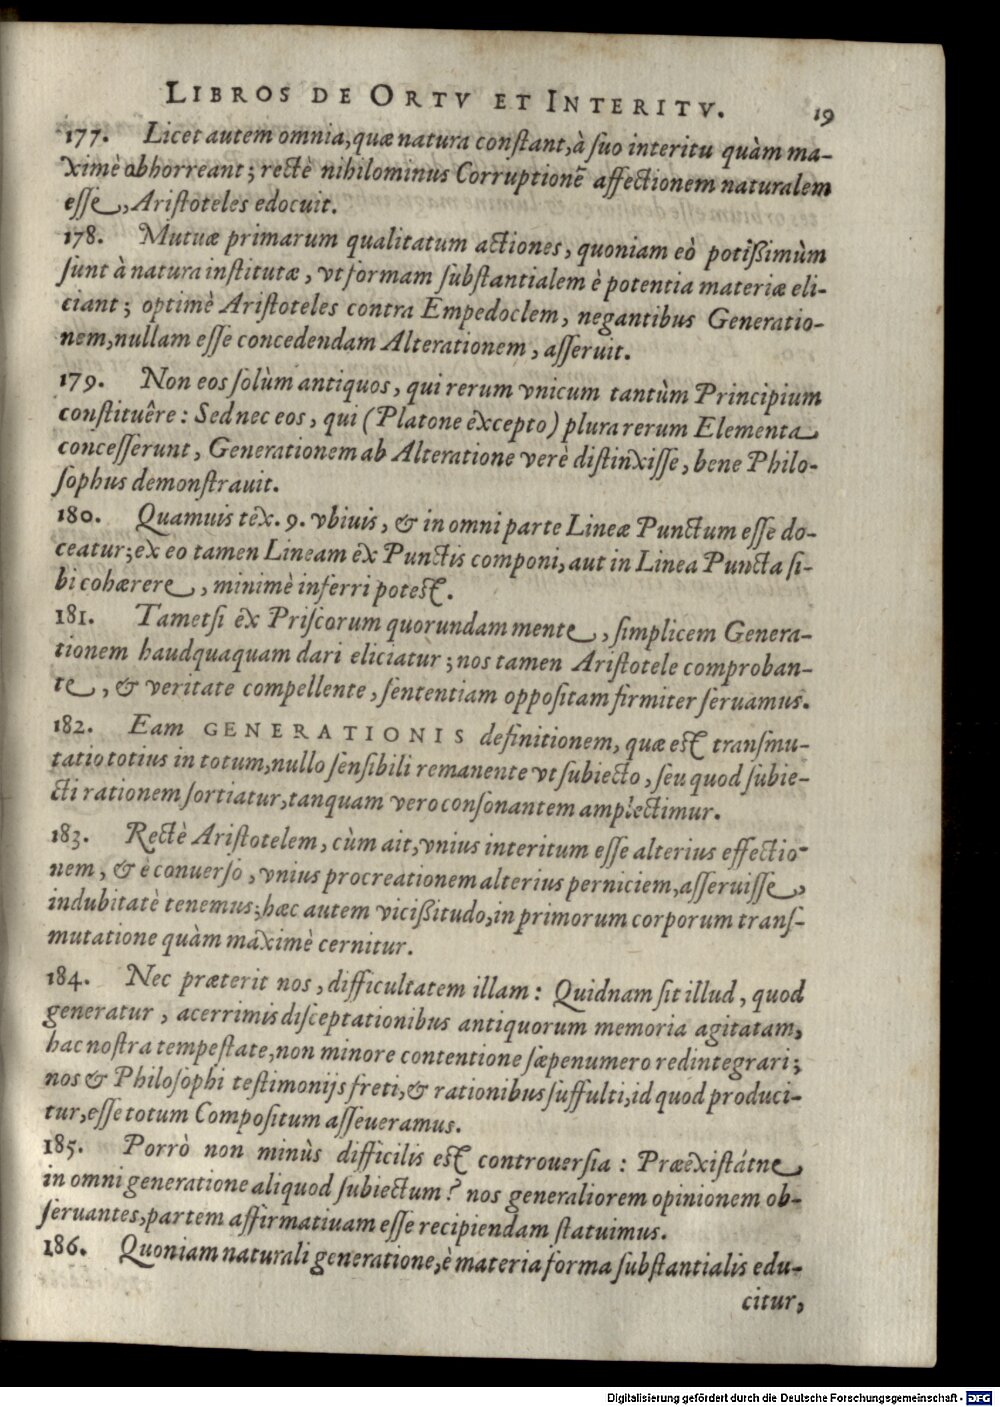 LIBROS DE ORTV ET INTERITV. 19
177. Licet autem omnia, quæ natura constant, à suo interitu quàm ma-
ximè abhorreant; rectè nihilominus Corruptionē affectionem naturalem
esse, Aristoteles edocuit.
178. Mutuæ primarum qualitatum actiones, quoniam eò potißimùm
sunt à natura institutæ, vt formam substantialem è potentia materiæ eli-
ciant; optimè Aristoteles contra Empedoclem, negantibus Generatio-
nem, nullam esse concedendam Alterationem, asseruit.
179. Non eos solùm antiquos, qui rerum vnicum tantùm Principium
constituêre: Sed nec eos, qui (Platone excepto) plura rerum Elementa
concesserunt, Generationem ab Alteratione verè distinxisse, bene Philo-
sophus demonstrauit.
180. Quamuis tex. 9. vbiuis, & in omni parte Lineæ Punctum esse do-
ceatur; ex eo tamen Lineam ex Punctis componi, aut in Linea Puncta si-
bi cohærere, minimè inferri potest.
181. Tametsi ex Priscorum quorundam mente, simplicem Genera-
tionem haudquaquam dari eliciatur; nos tamen Aristotele comproban-
te, & veritate compellente, sententiam oppositam firmiter seruamus.
182. Eam GENERATIONIS definitionem, quæ est transmu-
tatio totius in totum, nullo sensibili remanente vt subiecto, seu quod subie-
cti rationem sortiatur, tanquam vero consonantem amplectimur.
183. Rectè Aristotelem, cùm ait, vnius interitum esse alterius effectio-
nem, & è conuerso, vnius procreationem alterius perniciem, asseruisse,
indubitatè tenemus; hæc autem vicißitudo, in primorum corporum trans-
mutatione quàm maximè cernitur.
184. Nec præterit nos, difficultatem illam: Quidnam sit illud, quod
generatur, acerrimis disceptationibus antiquorum memoria agitatam,
hac nostra tempestate, non minore contentione sæpenumero redintegrari;
nos & Philosophi testimonijs freti, & rationibus suffulti, id quod produci-
tur, esse totum Compositum asseueramus.
185. Porrò non minùs difficilis est controuersia: Præexistátne
in omni generatione aliquod subiectum? nos generaliorem opinionem ob-
seruantes, partem affirmatiuam esse recipiendam statuimus.
186. Quoniam naturali generatione, è materia forma substantialis edu-
citur,
Digitalisierung gefördert durch die Deutsche Forschungsgemeinschaft - DFG